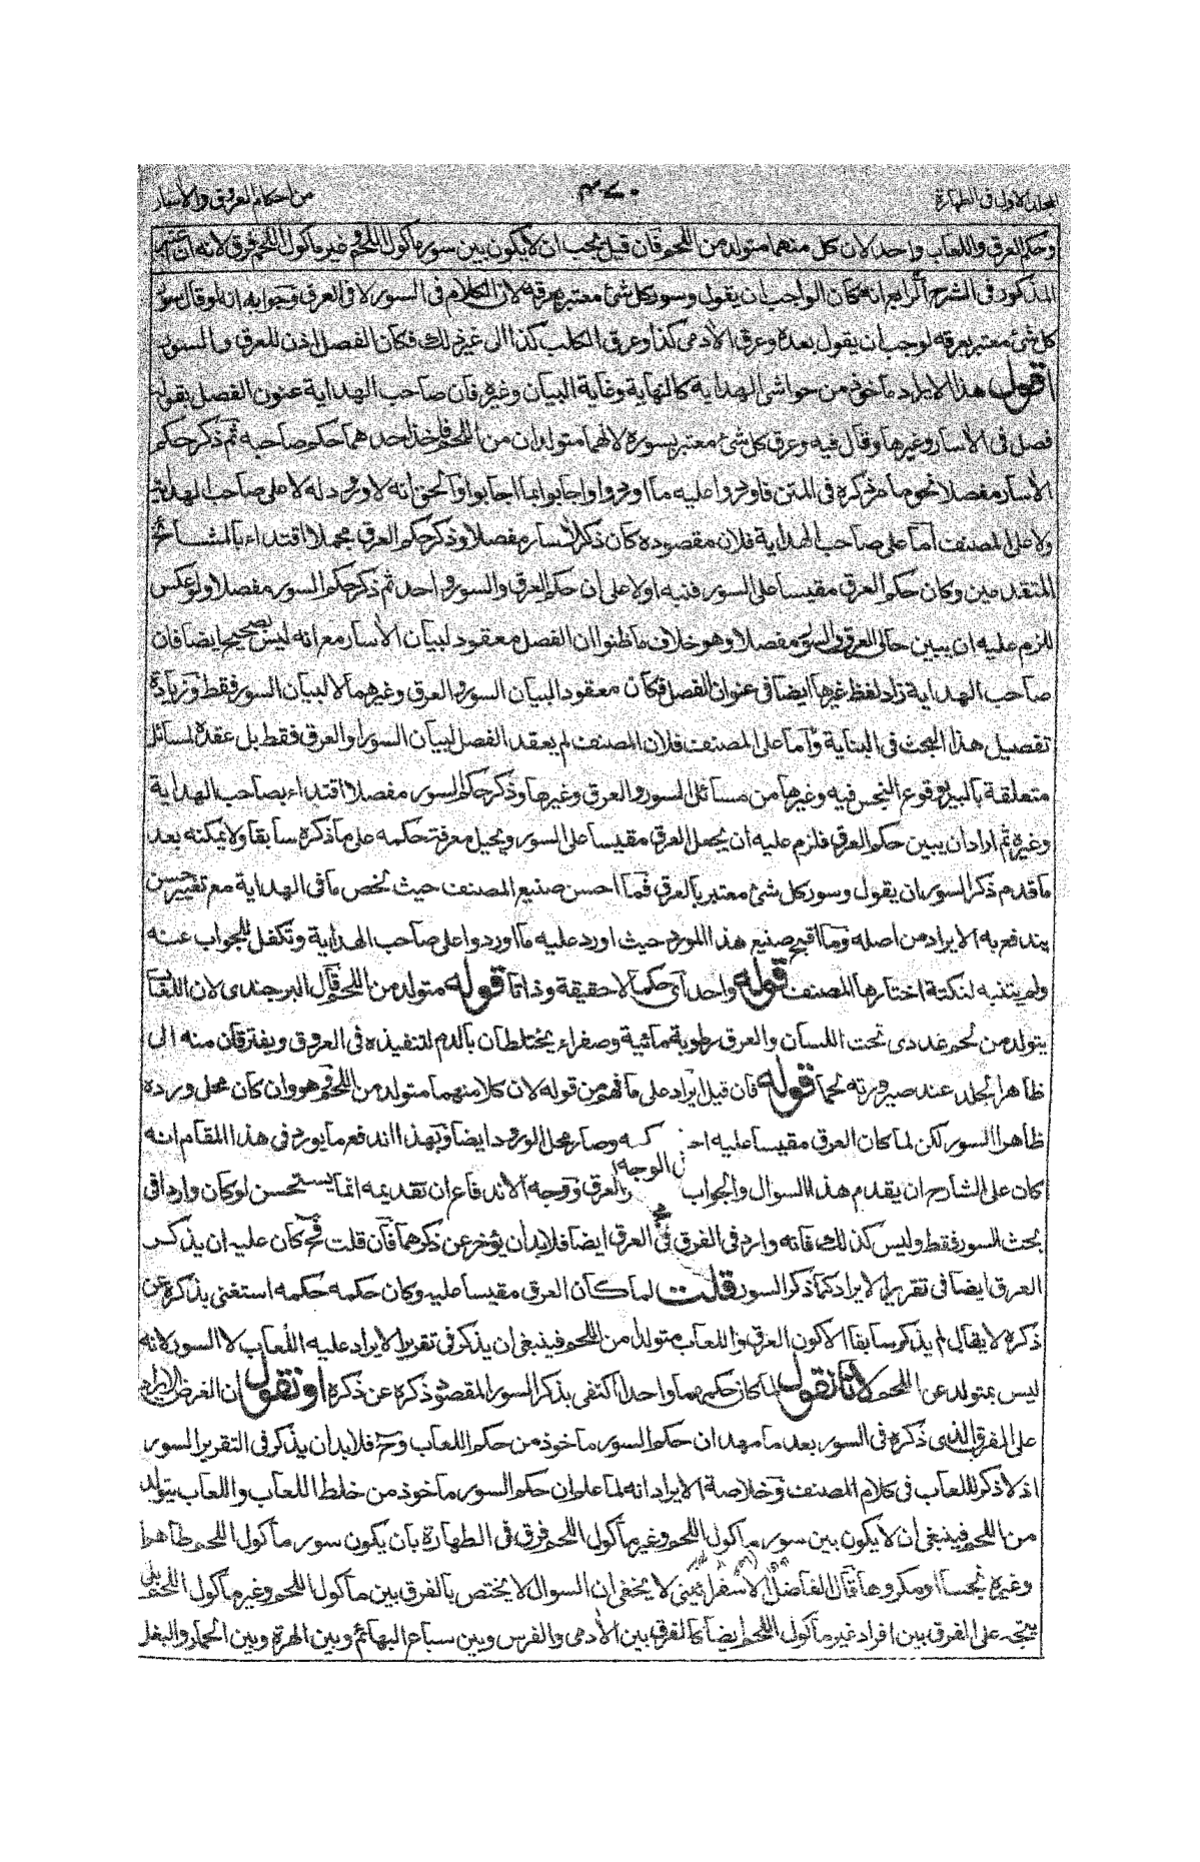 المجلد الاول فى الطهارة ٤٧٠ من احكام العرق والاسار
وحكم العرق واللعاب واحد لان كل منهما متولد من اللحم فان قيل يجب ان لا يكون بين سور ماكول اللحم وغير ماكول اللحم فرق لانه ان اعتبر
المذكور فى الشرح الرابع انه كان الواجب ان يقول وسور كل شئ معتبر بعرقه لان الكلام فى السور لا فى العرق وجوابه انه لو قال سور
كل شئ معتبر بعرقه لوجب ان يقول بعده وعرق الآدمى كذا وعرق الكلب كذا الى غير ذلك فكان الفصل اذن للعرق و السور
اقول هذا الايراد ماخوذ من حواشى الهداية كالنهاية وغاية البيان وغيره فان صاحب الهداية عنون الفصل بقوله
فصل فى الآسار وغيرها وقال فيه وعرق كل شئ معتبر بسوره لانهما متولدان من اللحم فاخذ احدهما حكم صاحبه ثم ذكر حكم
الآسار مفصلا نحو ما ذكره فى المتن فاوردوا عليه ما اوردوا واجابوا بما اجابوا والحق انه لا ورود له لا على صاحب الهداية
ولا على المصنف اما على صاحب الهداية فلان مقصوده كان ذكر الآسار مفصلا وذكر حكم العرق مجملا اقتداء بالمشائخ
المتقدمين وكان حكم العرق مقيسا على السور فنبه اولا على ان حكم العرق والسور واحد ثم ذكر حكم السور مفصلا ولو عكس
للزم عليه ان يبين حال العرق والسور مفصلا وهو خلاف ما ظنوا ان الفصل معقود لبيان الآسار مع انه ليس بصحيح ايضا فان
صاحب الهداية زاد لفظ غيرها ايضا فى عنوان الفصل فكان معقودا لبيان السور والعرق وغيرهما لا لبيان السور فقط وزيادة
تفصيل هذا البحث فى البناية واما على المصنف فلان المصنف لم يعقد الفصل لبيان السور او العرق فقط بل عقده لمسائل
متعلقة بالبير ووقوع النجس فيه وغيرها من مسائل السور والعرق وغيرها وذكر حكم السور مفصلا اقتداء بصاحب الهداية
وغيره ثم اراد ان يبين حكم العرق فلزم عليه ان يجعل العرق مقيسا على السور ويحيل معرفة حكمه على ما ذكره سابقا ولا يمكنه بعد
ما قدم ذكر السور ان يقول وسور كل شئ معتبر بالعرق فما احسن صنيع المصنف حيث لخص ما فى الهداية مع تغيير حسن
يندفع به الايراد من اصله وما اقبح صنيع هذا المورد حيث اورد عليه ما اوردوا على صاحب الهداية وتكفل للجواب عنه
ولم يتنبه لنكتة اختارها المصنف قوله واحد اى حكما لا حقيقة وذاتا قوله متولد من اللحم قال البرجندى لان اللعاب
يتولد من لحم غددى تحت اللسان والعرق رطوبة مائية وصفراء يختلطان بالدم لتنفيذه فى العروق ويفترقان منه الى
ظاهر الجلد عند صيرورته لحما قوله فان قيل ايراد على ما فهم من قوله لان كلا منهما متولد من اللحم وهو وان كان محل وروده
ظاهرا السور لكن لما كان العرق مقيسا عليه كه وصار محل الورود ايضا وبهذا اندفع ما يورد فى هذا المقام انه
كان على الشارح ان يقدم هذا السوال والجواب العرق ووجه الاندفاع ان تقديمه انما يستحسن لو كان واردا فى
بحث السور فقط وليس كذلك فانه وارد فى الفرق فى العرق ايضا فلا بد ان يؤخر عن ذكرهما فان قلت فح كان عليه ان يذكر
العرق ايضا فى تقرير الايراد كما ذكر السور قلت لما كان العرق مقيسا عليه وكان حكمه حكمه استغنى بذكره عن
ذكره لا يقال لم يذكر سابقا الا كون العرق واللعاب متولدا من اللحم فينبغى ان يذكر فى تقرير الايراد عليه اللعاب لا السور لانه
ليس بمتولد عن اللحم لانا نقول لما كان حكمهما واحدا اكتفى بذكر السور المقصود ذكره عن ذكره او نقول ان الغرض الايراد
على الفرق الذى ذكره فى السور بعد ما مهد ان حكم السور ماخوذ من حكم اللعاب وح فلا بد ان يذكر فى التقرير السور
اذ لا ذكر للعاب فى كلام المصنف وخلاصة الايراد انه لما علم ان حكم السور ماخوذ من خلط اللعاب واللعاب يتولد
من اللحم فينبغى ان لا يكون بين سور ماكول اللحم وغير ماكول اللحم فرق فى الطهارة بان يكون سور ماكول اللحم طاهرا
وغيره نجسا او مكروها قال الفاضل الاسفرائينى لا يخفى ان السوال لا يختص بالفرق بين ماكول اللحم وغير ماكول اللحم بل
يتجه على الفرق بين افراد غير ماكول اللحم ايضا كالفرق بين الآدمى والفرس وبين سباع البهائم وبين الهرة وبين الحمار والبغل